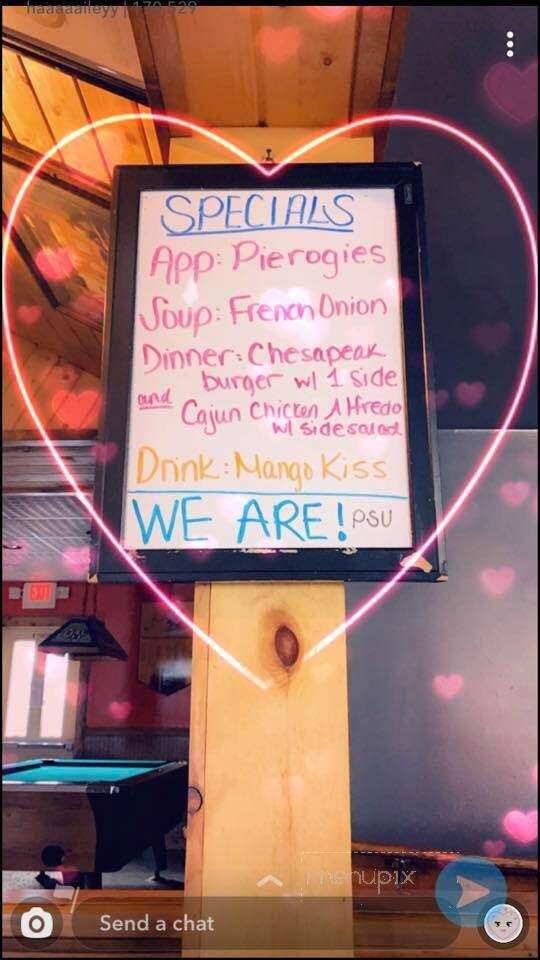 haaaaaileyy | 170,529
SPECIALS
App: Pierogies
Soup: French Onion
Dinner: Chesapeak
burger w/ 1 side
and Cajun Chicken Alfredo
w/ side salad
Drink: Mango Kiss
WE ARE! PSU
EXIT
menupix
Send a chat